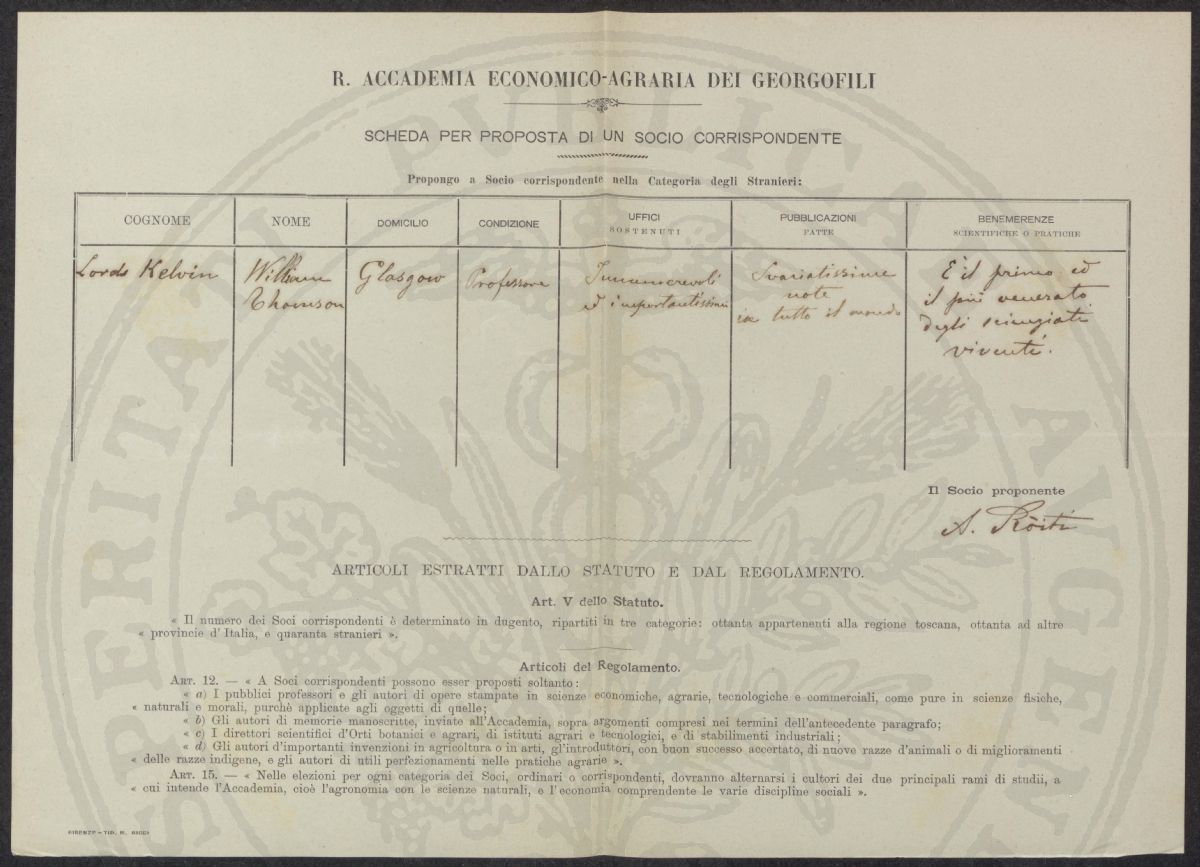 R. ACCADEMIA ECONOMICO-AGRARIA DEI GEORGOFILI
SCHEDA PER PROPOSTA DI UN SOCIO CORRISPONDENTE
Propongo a Socio corrispondente nella Categoria degli Stranieri:
COGNOME
NOME
DOMICILIO
CONDIZIONE
UFFICI
SOSTENUTI
PUBBLICAZIONI
FATTE
BENEMERENZE
SCIENTIFICHE O PRATICHE
Lords Kelvin
William
Thomson
Glasgow
Professore
Innumerevoli
ed importantissimi
Svariatissime
note
in tutto il mondo
È il primo ed
il più venerato
degli scienziati
viventi.
Il Socio proponente
A. Ròiti
ARTICOLI ESTRATTI DALLO STATUTO E DAL REGOLAMENTO.
Art. V dello Statuto.
« Il numero dei Soci corrispondenti è determinato in dugento, ripartiti in tre categorie: ottanta appartenenti alla regione toscana, ottanta ad altre
« provincie d'Italia, e quaranta stranieri ».
Articoli del Regolamento.
ART. 12. — « A Soci corrispondenti possono esser proposti soltanto:
« a) I pubblici professori e gli autori di opere stampate in scienze economiche, agrarie, tecnologiche e commerciali, come pure in scienze fisiche,
« naturali e morali, purchè applicate agli oggetti di quelle;
« b) Gli autori di memorie manoscritte, inviate all'Accademia, sopra argomenti compresi nei termini dell'antecedente paragrafo;
« c) I direttori scientifici d'Orti botanici e agrari, di istituti agrari e tecnologici, e di stabilimenti industriali;
« d) Gli autori d'importanti invenzioni in agricoltura o in arti, gl'introduttori, con buon successo accertato, di nuove razze d'animali o di miglioramenti
« delle razze indigene, e gli autori di utili perfezionamenti nelle pratiche agrarie ».
ART. 15. — « Nelle elezioni per ogni categoria dei Soci, ordinari o corrispondenti, dovranno alternarsi i cultori dei due principali rami di studii, a
« cui intende l'Accademia, cioè l'agronomia con le scienze naturali, e l'economia comprendente le varie discipline sociali ».
FIRENZE – TIP. M. RICCI